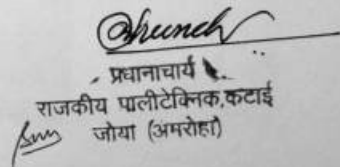 प्रधानाचार्य
राजकीय पालीटेक्निक,कटाई
जोया (अमरोहा)